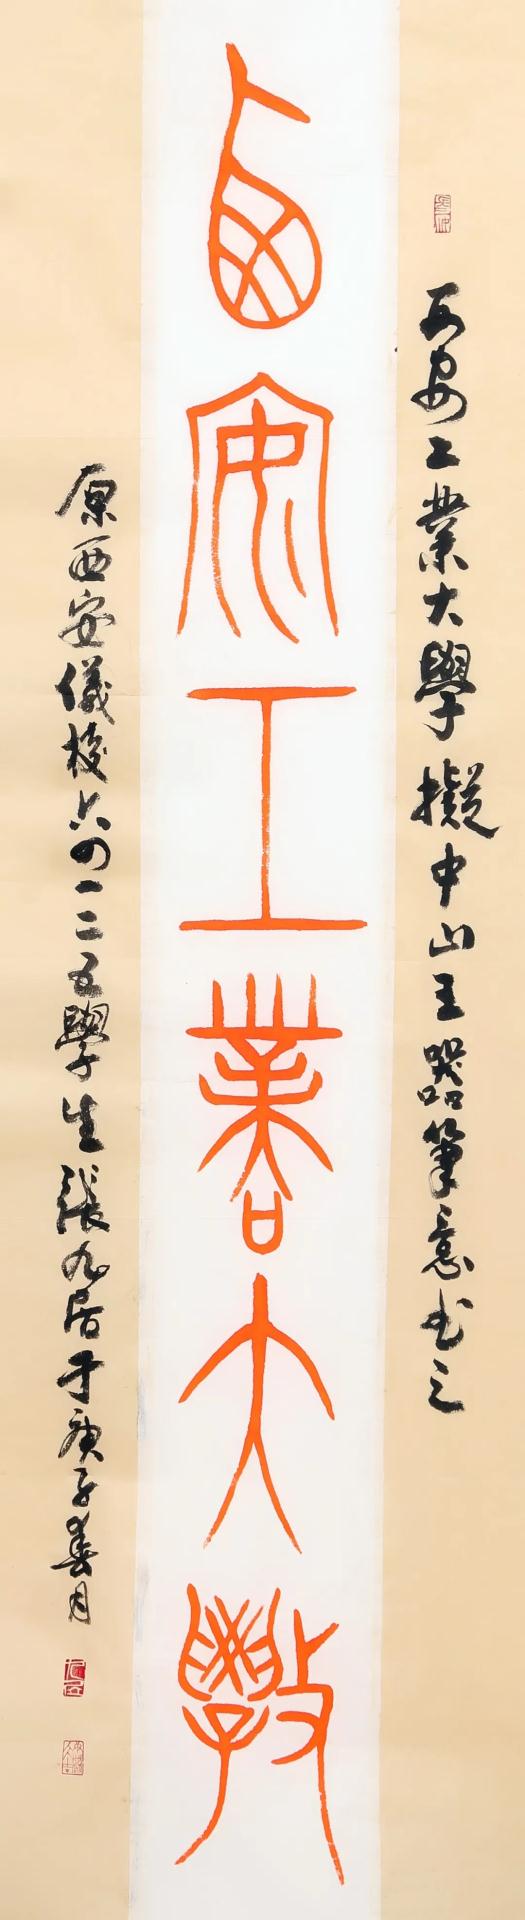 西安工業大學擬中山王器筆意書之
西安工業大學
原西安儀校六四一二五學生張九居于庚子春月